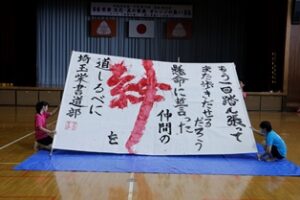 もう一回踏ん張って
また歩きだせるだろう
懸命に誓った
仲間の
絆
を
道しるべに
埼玉栄書道部